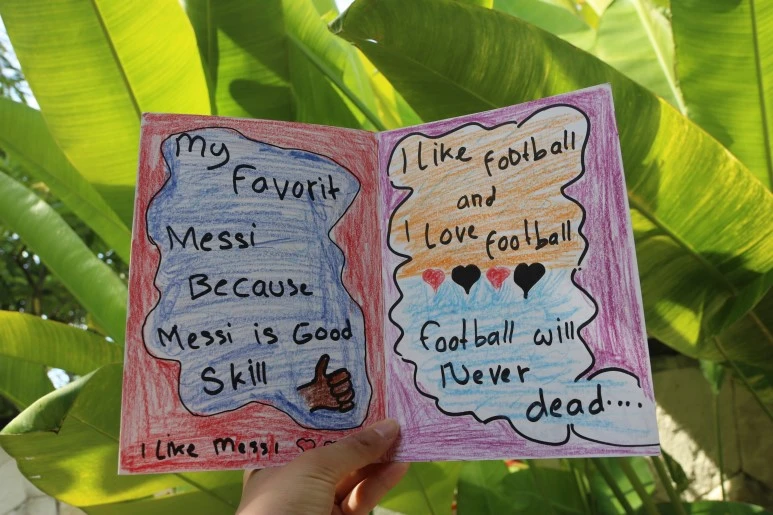 My
Favorit
Messi
Because
Messi is Good
Skill
I Like Messi
I like football
and
I Love football
football will
Never
dead....